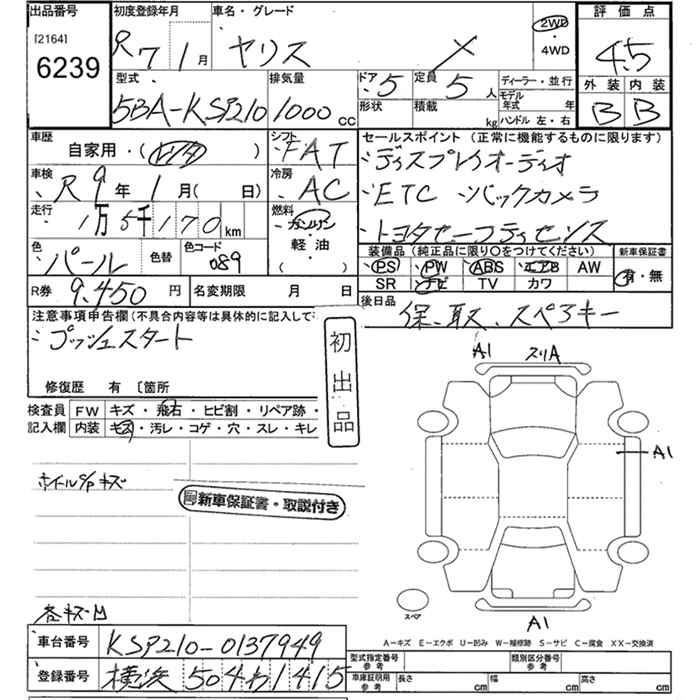 出品番号 初度登録年月 車名・グレード 評価点
[2164] 6239
R7年1月 ヤリス X 2WD・4WD 4.5
型式 排気量 ドア 5 定員 5人 ディーラー・並行 外装 内装
5BA-KSP210 1000cc 形状 積載 kg モデル年式 年 ハンドル 左・右 B B
車歴 自家用・(レンタ) シフト FAT セールスポイント(正常に機能するものに限ります)
・ディスプレイオーディオ
車検 R9年1月(日) 冷房 AC ・ETC ・バックカメラ
走行 1万5千170km 燃料 ガソリン・軽・油・( ) ・トヨタセーフティセンス
色 パール 色替 色コード 089 装備品(純正品に限り〇をつけてください) 新車保証書
PS PW ABS エアB AW 有・無
SR ナビ TV カワ
R券 9,450円 名変期限 月 日 後日品 保、取、スペアキー
注意事項申告欄(不具合内容等は具体的に記入して
・プッシュスタート
修復歴 有 〔箇所
初出品
検査員記入欄 FW キズ・飛石・ヒビ割・リペア跡・
内装 キズ・汚レ・コゲ・穴・スレ・キレ
A1 スリA
A1
ホイールC/Pキズ
新車保証書・取説付き
スペア
A1
各キズ凹
A-キズ E-エクボ U-凹み W-補修跡 S-サビ C-腐食 XX-交換済
車台番号 KSP210-0137949
型式指定番号 参考 類別区分番号 参考
登録番号 横浜 504わ1415
車庫証明用 参考 長さ cm 幅 cm 高さ cm